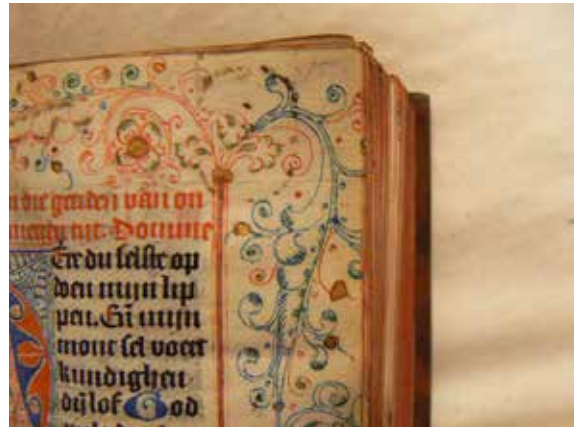 die getiden van on
Domine
Ere du selste op
doen mijn lip
pen. Eñ mijn
mont sel voert
kundighen
dij lof God